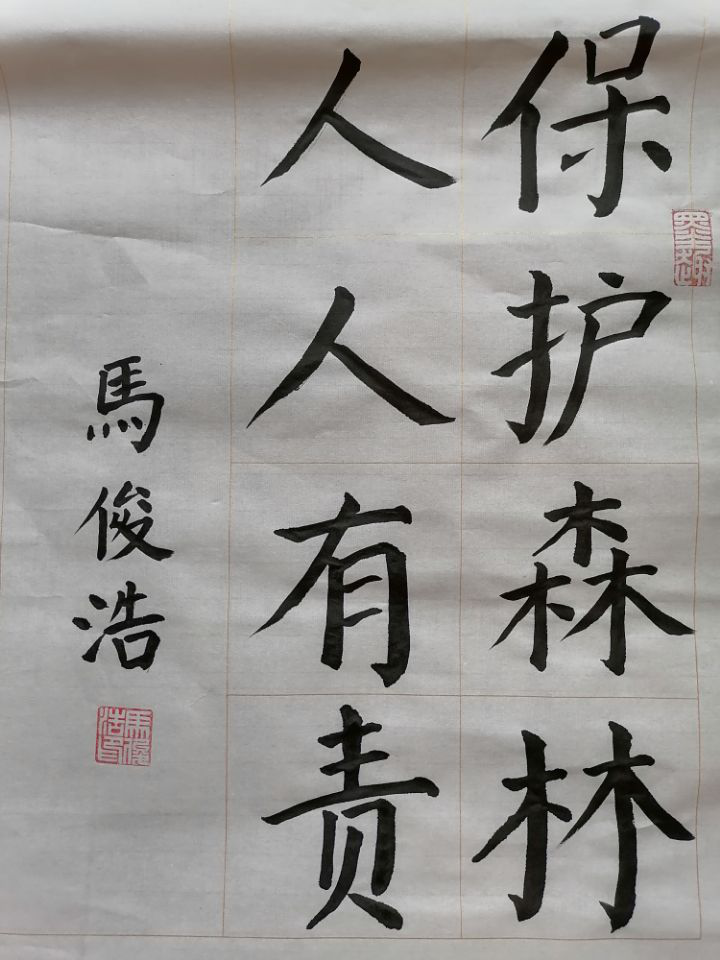 保护森林
人人有责
馬俊浩